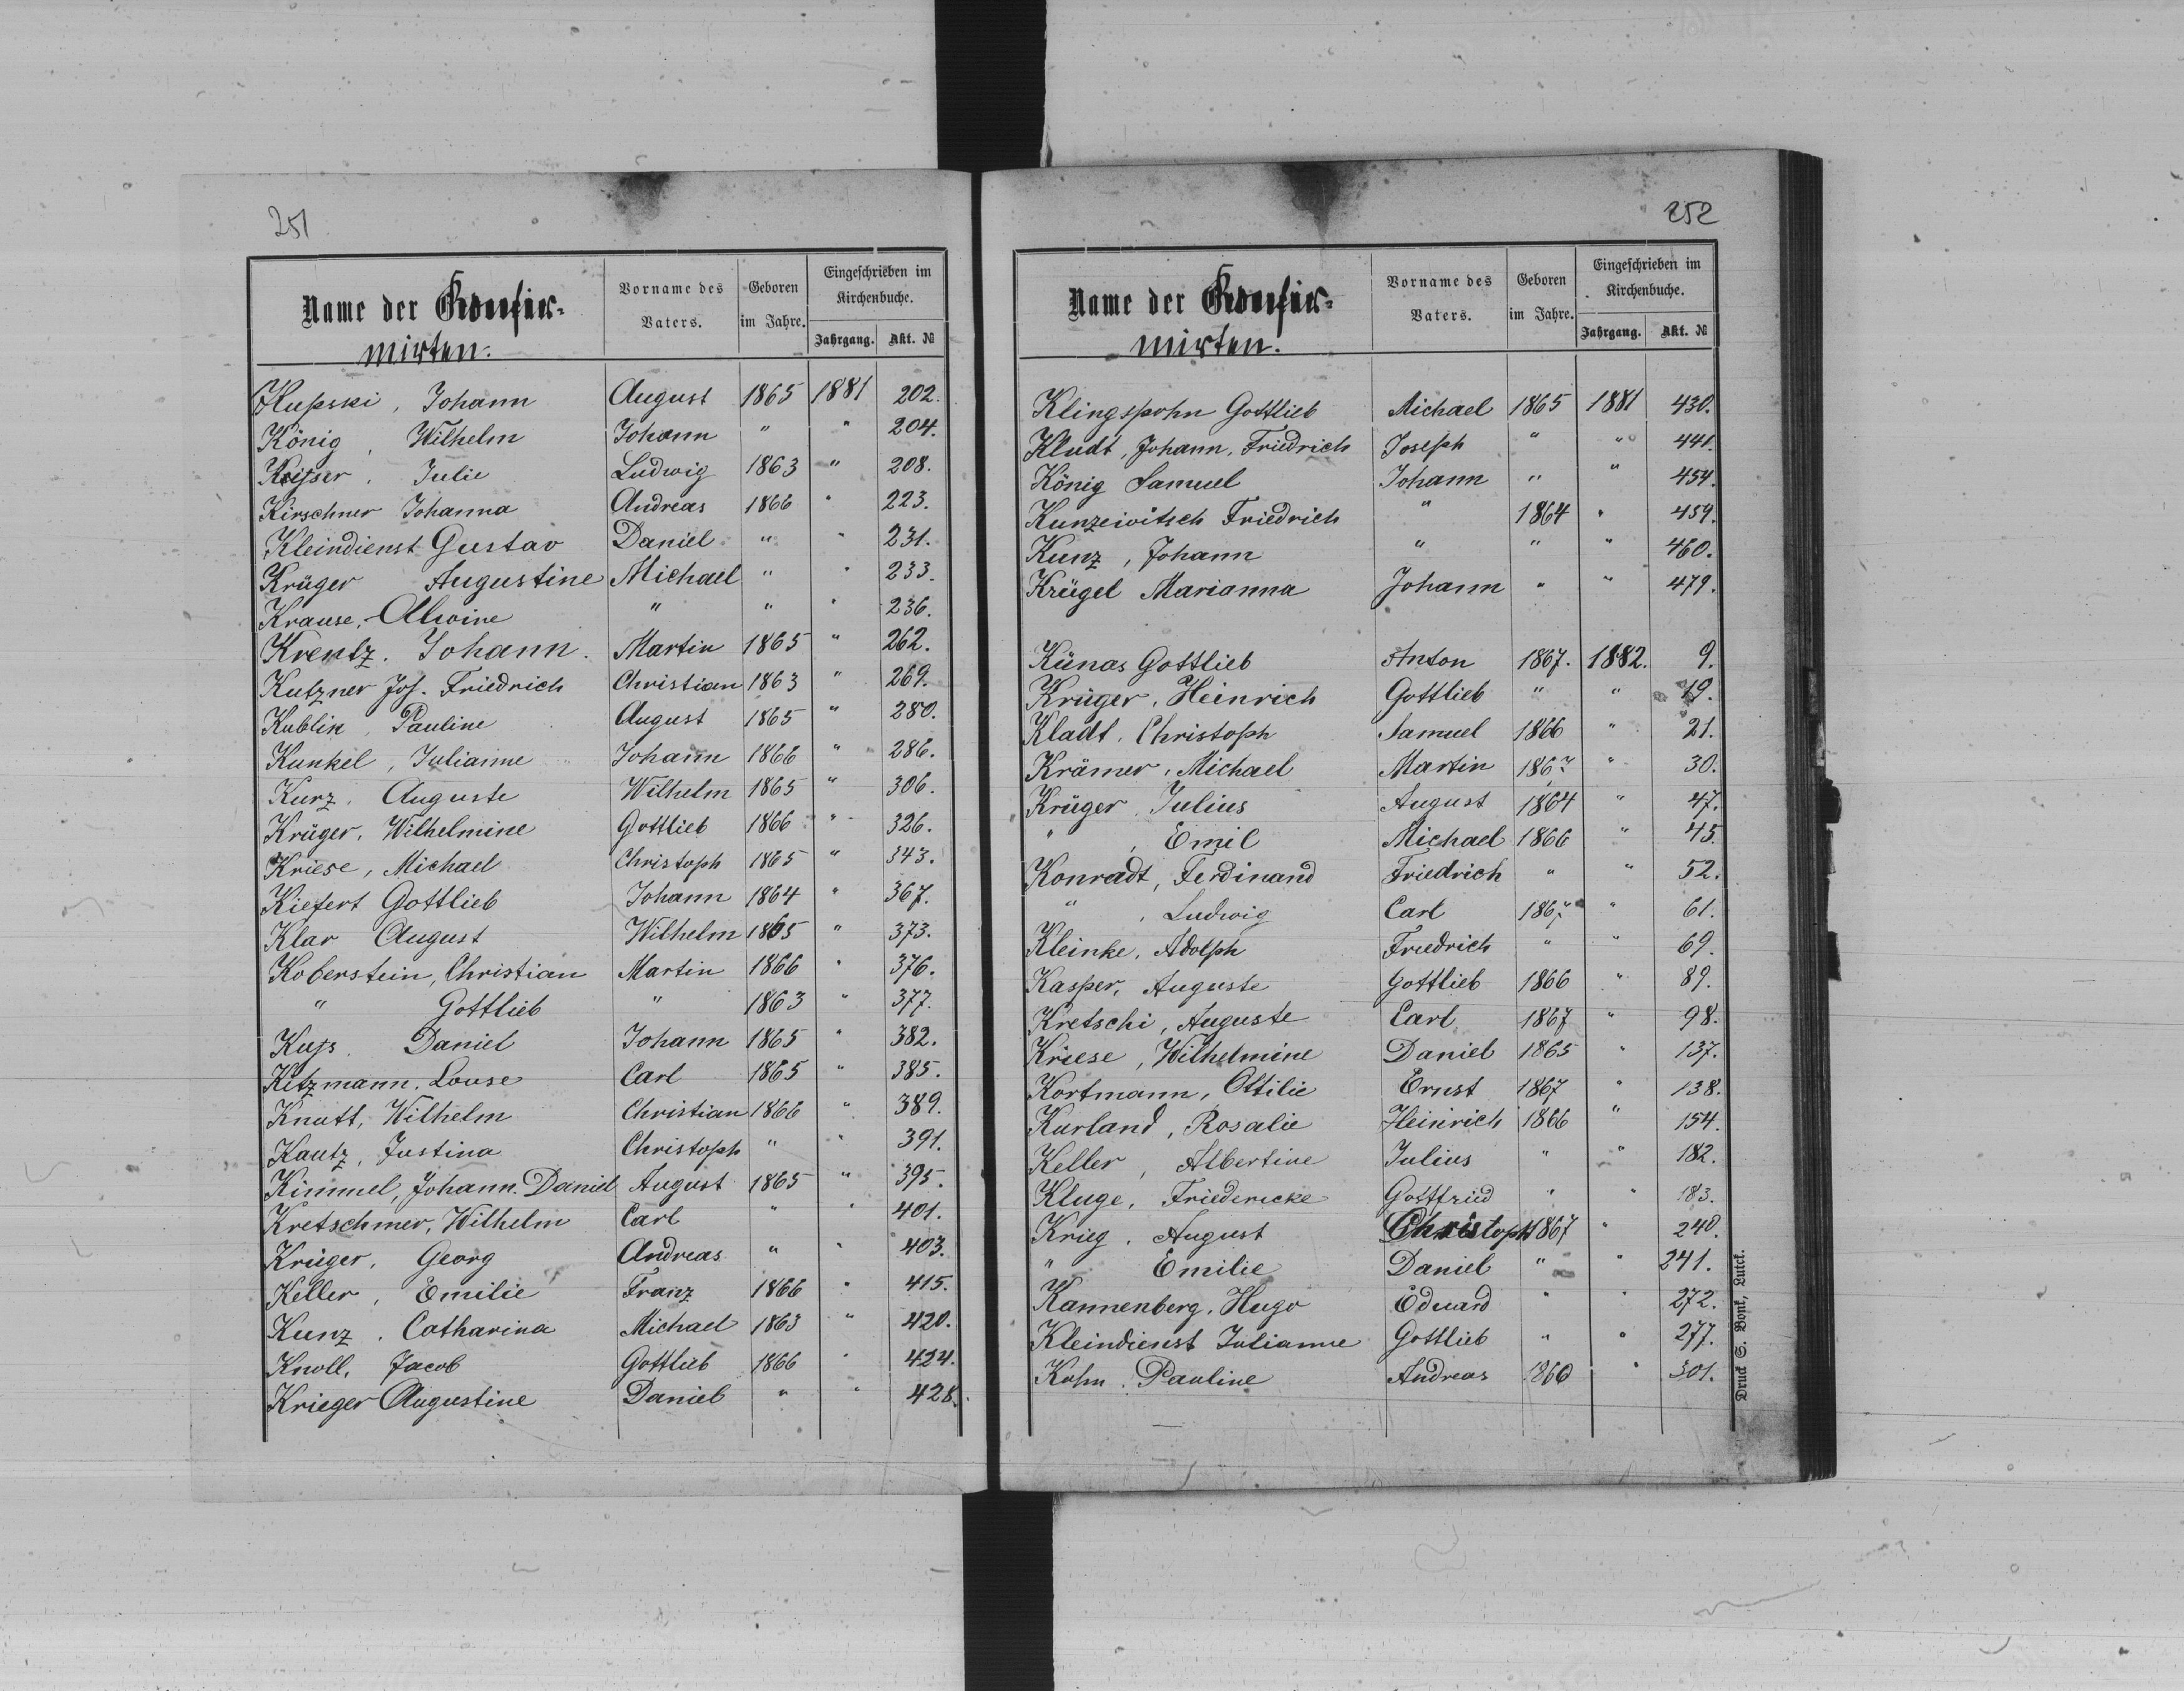 251
Name der Konfir-
mirten.
Vorname des Vaters.
Geboren im Jahre.
Eingeschrieben im Kirchenbuche.
Jahrgang. Akt. №
Kupski, Johann August 1865 1881 202.
König, Wilhelm Johann " " 204.
Keiser, Julie Ludwig 1863 " 208.
Kirschner Johanna Andreas 1866 " 223.
Kleindienst Gustav Daniel " " 231.
Krüger Augustine Michael " " 233.
Krause, Alwine " " " 236.
Krentz. Johann. Martin 1865 " 262.
Kutzner Jos. Friedrich Christian 1863 " 269.
Kublik, Pauline August 1865 " 280.
Kunkel, Julianne Johann 1866 " 286.
Kurz, Auguste Wilhelm 1865 " 306.
Krüger, Wilhelmine Gottlieb 1866 " 326.
Kriese, Michael Christoph 1865 " 343.
Kiefert Gottlieb Johann 1864 " 367.
Klar August Wilhelm 1865 " 373.
Koberstein, Christian Martin 1866 " 376.
" Gottlieb " 1863 " 377.
Kujs. Daniel Johann 1865 " 382.
Kitzmann, Louse Carl 1865 " 385.
Knutt, Wilhelm Christian 1866 " 389.
Kautz, Justina Christoph " " 391.
Kimmel, Johann. Daniel August 1865 " 395.
Kretschmer, Wilhelm Carl " " 401.
Krüger, Georg Andreas " " 403.
Keller, Emilie Franz 1866 " 415.
Kunz, Catharina Michael 1863 " 420.
Knoll, Jacob Gottlieb 1866 " 424.
Krieger Augustine Daniel " " 428.
252
Name der Konfir-
mirten.
Vorname des Vaters.
Geboren im Jahre.
Eingeschrieben im Kirchenbuche.
Jahrgang. Akt. №
Klingspohn Gottlieb Michael 1865 1881 430.
Kludt, Johann, Friedrich Joseph " " 441.
König Samuel Johann " " 454.
Kunzewitsch Friedrich " 1864 " 459.
Kunz, Johann " " " 460.
Krügel Marianna Johann " " 479.
Künas Gottlieb Anton 1867. 1882. 9.
Krüger, Heinrich Gottlieb " " 19.
Kladt, Christoph Samuel 1866 " 21.
Krämer, Michael Martin 1867 " 30.
Krüger, Julius August 1864 " 47.
" , Emil Michael 1866 " 45.
Konradt, Ferdinand Friedrich " " 52.
" , Ludwig Carl 1867 " 61.
Kleinke, Adolph Friedrich " " 69.
Kasper, Auguste Gottlieb 1866 " 89.
Kretschi, Auguste Carl 1867 " 98.
Kriese, Wilhelmine Daniel 1865 " 137.
Kortmann, Ottilie Ernst 1867 " 138.
Kurland, Rosalie Heinrich 1866 " 154.
Keller, Albertine Julius " " 182.
Kluge, Friedericke Gottfried " " 183.
Krieg, August Christoph 1867 " 240.
" Emilie Daniel " " 241.
Kannenberg, Hugo Eduard " " 272.
Kleindienst Julianne Gottlieb " " 277.
Kuhn. Pauline Andreas 1860 " 301.
Druck S. Bonk, Lutck.